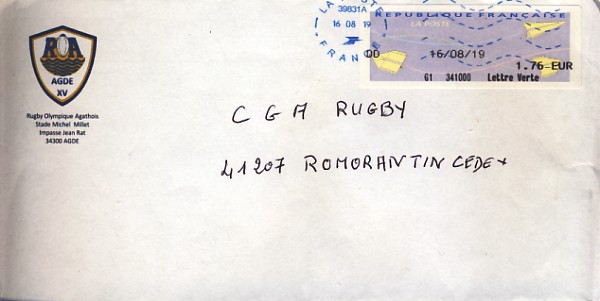 ROA
AGDE
XV
Rugby Olympique Agathois
Stade Michel Millet
Impasse Jean Rat
34300 AGDE
LA POSTE
39831A
16 08 19
FRANCE
REPUBLIQUE FRANÇAISE
LA POSTE
00 16/08/19
1.76 EUR
G1 341000 Lettre Verte
C G A RUGBY
41207 ROMORANTIN CEDEX